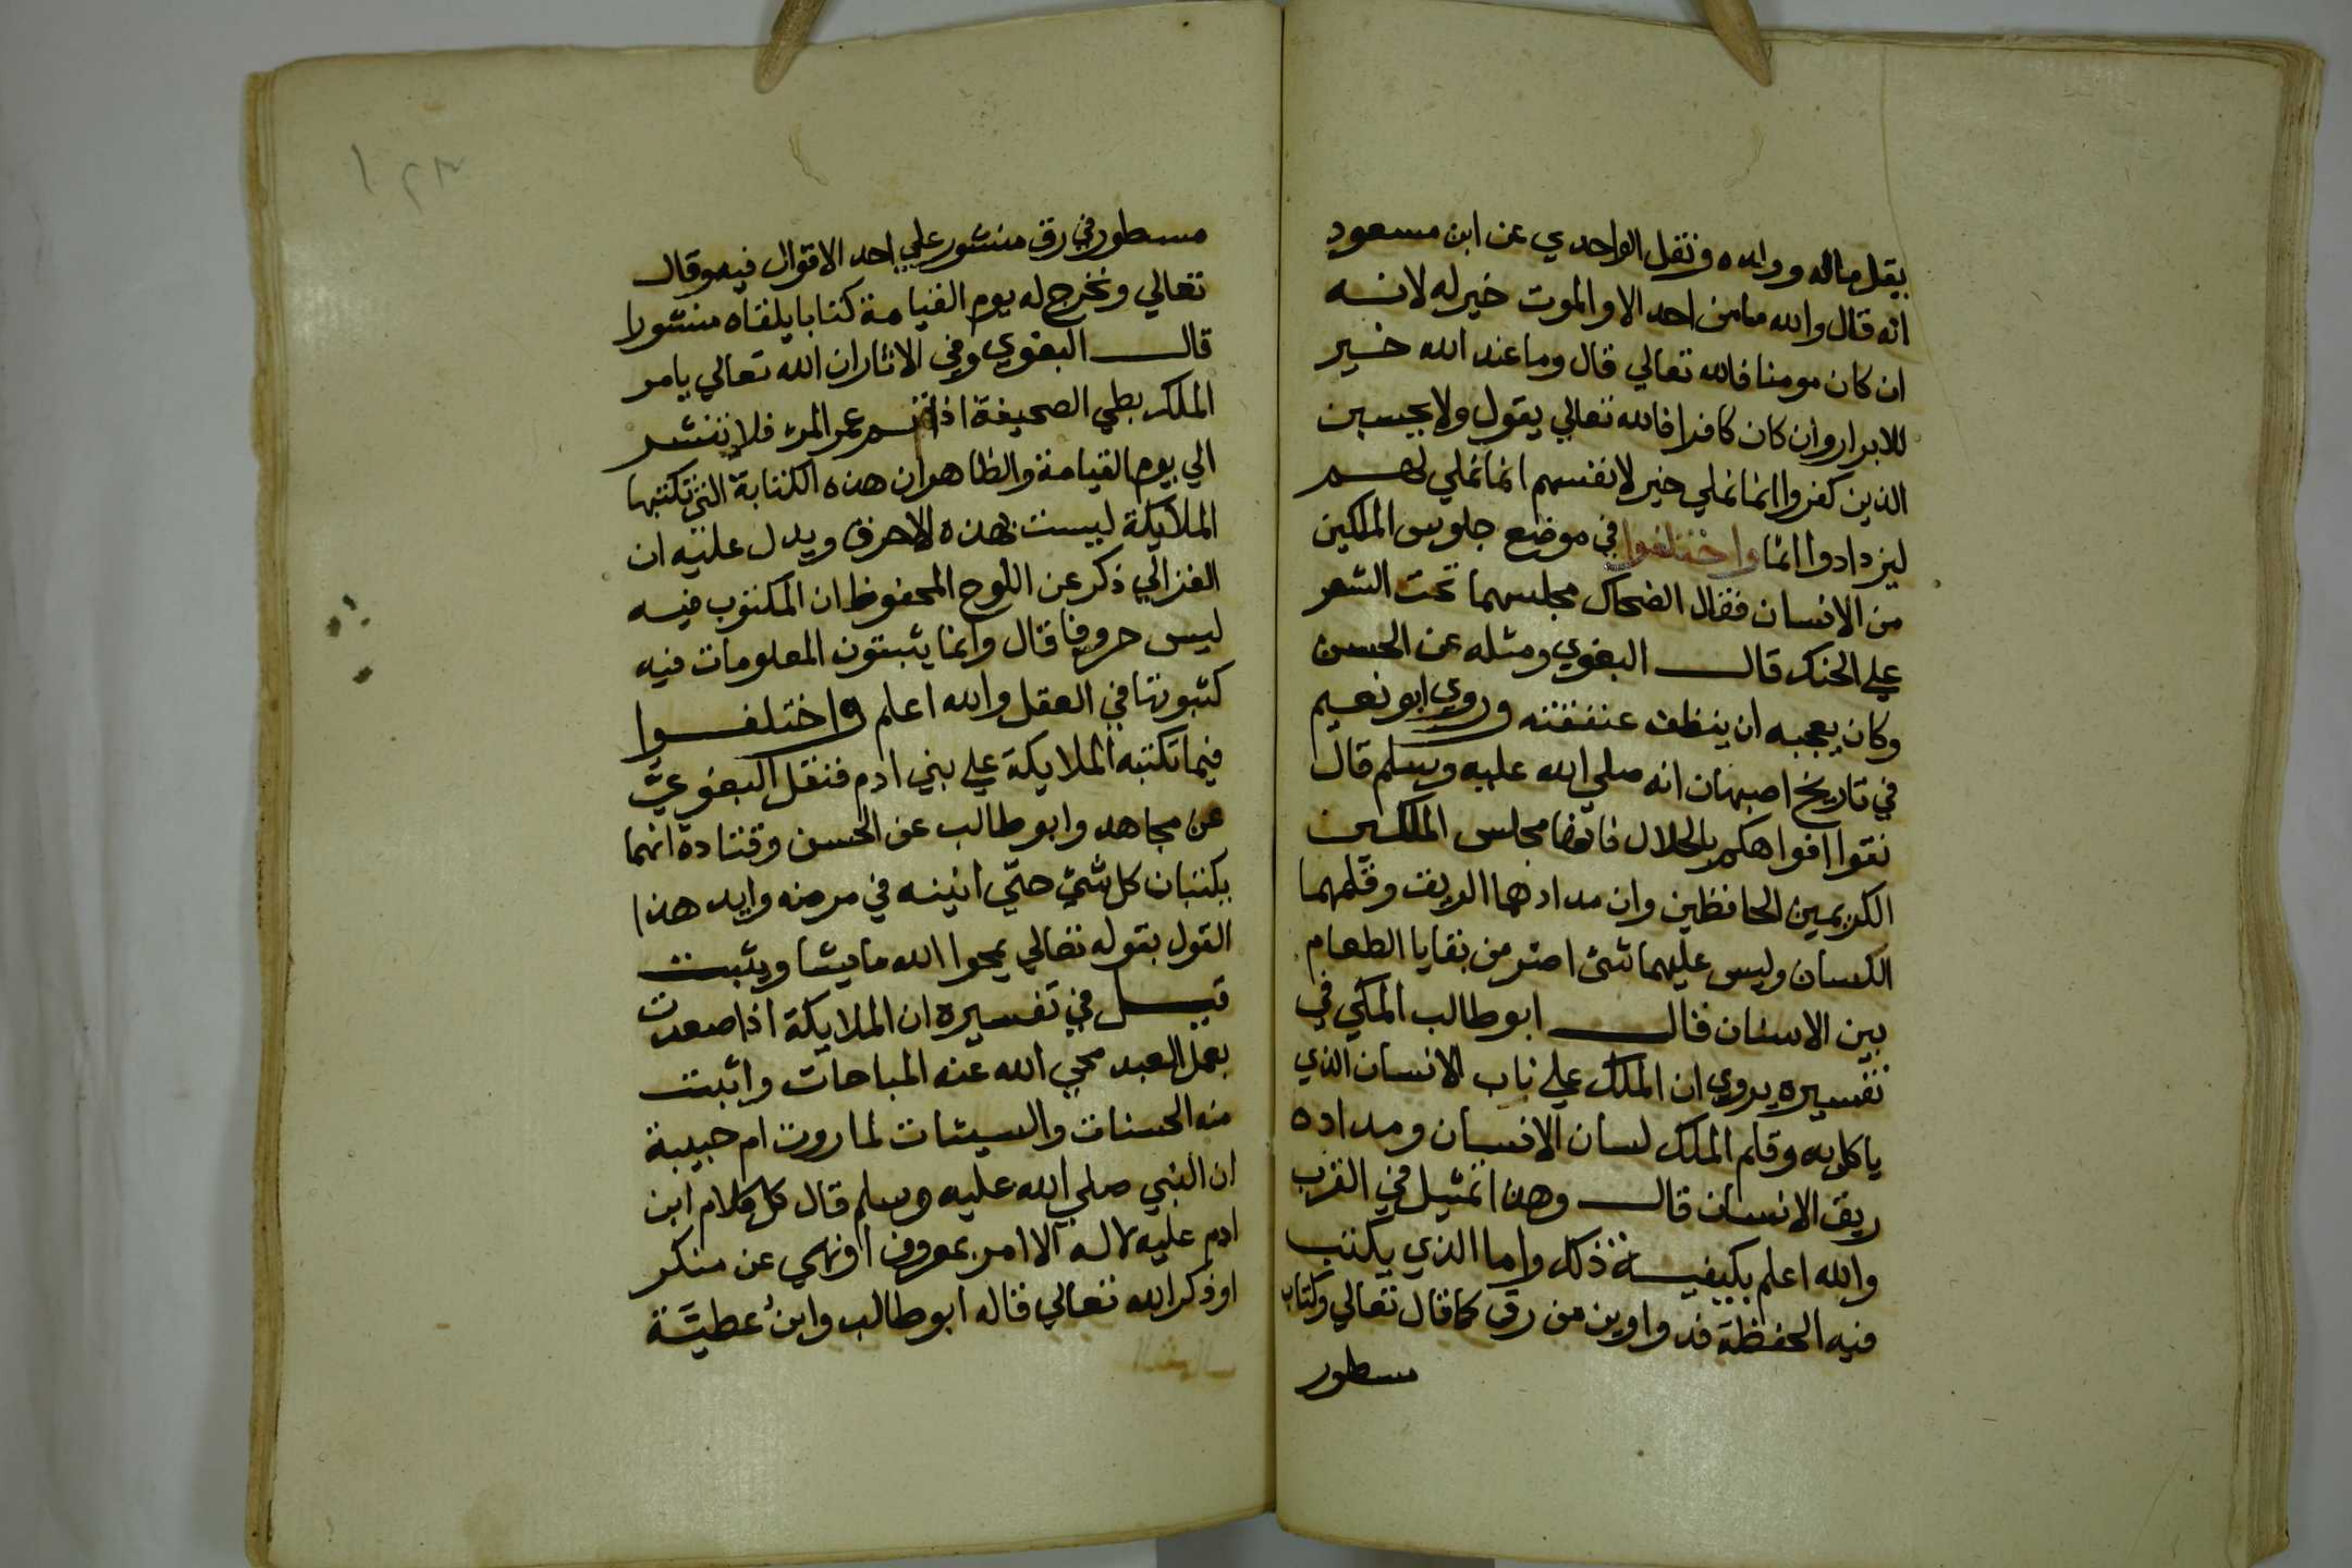 يقل ماله وولده ونقل الواحدي عن ابن مسعود
انه قال والله ما من احد الا والموت خير له لانه
ان كان مومنا فالله تعالي قال وما عند الله خير
للابرار وان كان كافرا فالله تعالي يقول ولا يحسبن
الذين كفروا انما نملي خير لانفسهم انما نملي لهم
ليزدادوا اثما واختلفوا في موضع جلوس الملكين
من الانسان فقال الضحاك مجلسهما تحت الشعر
علي الحنك قال البغوي ومثله عن الحسن
وكان يعجبه ان ينظف عنفقته وروي ابو نعيم
في تاريخ اصبهان انه صلي الله عليه وسلم قال
نقوا افواهكم بالخلال فانها مجلس الملكين
الكريمين الحافظين وان مدادهما الريق وقلمهما
اللسان وليس عليهما شئ اضر من بقايا الطعام
بين الاسنان قال ابو طالب المكي في
تفسيره يروي ان الملك علي ناب الانسان الذي
ياكل به وقلم الملك لسان الانسان ومداده
ريق الانسان قال وهذا تمثيل في القرب
والله اعلم بكيفية ذلك واما الذي يكتب
فيه الحفظة فدواوين من رق كما قال تعالي وكتاب
مسطور
مسطور في رق منشور علي احد الاقوال فيه وقال
تعالي ونخرج له يوم القيامة كتابا يلقاه منشورا
قال البغوي وفي الاثار ان الله تعالي يامر
الملك بطي الصحيفة اذا تم عمر المرء فلا تنشر
الي يوم القيامة والظاهر ان هذه الكتابة التي تكتبها
الملايكة ليست بهذه الاحرف ويدل عليه ان
الغزالي ذكر عن اللوح المحفوظ ان المكتوب فيه
ليس حروفا قال وانما يثبتون المعلومات فيه
كثبوتها في العقل والله اعلم واختلفوا
فيما تكتبه الملايكة علي بني ادم فنقل البغوي
عن مجاهد وابو طالب عن الحسن وقتادة انهما
يكتبان كل شئ حتي انينه في مرضه وايد هذا
القول بقوله تعالي يمحوا الله ما يشا ويثبت
قيل في تفسيره ان الملايكة اذا صعدت
بعمل العبد محي الله عنه المباحات واثبت
منه الحسنات والسيئات لما روت ام حبيبة
ان النبي صلي الله عليه وسلم قال كل كلام ابن
ادم عليه لا له الا امر بمعروف او نهي عن منكر
او ذكر الله تعالي قاله ابو طالب وابن عطية
١٢٣